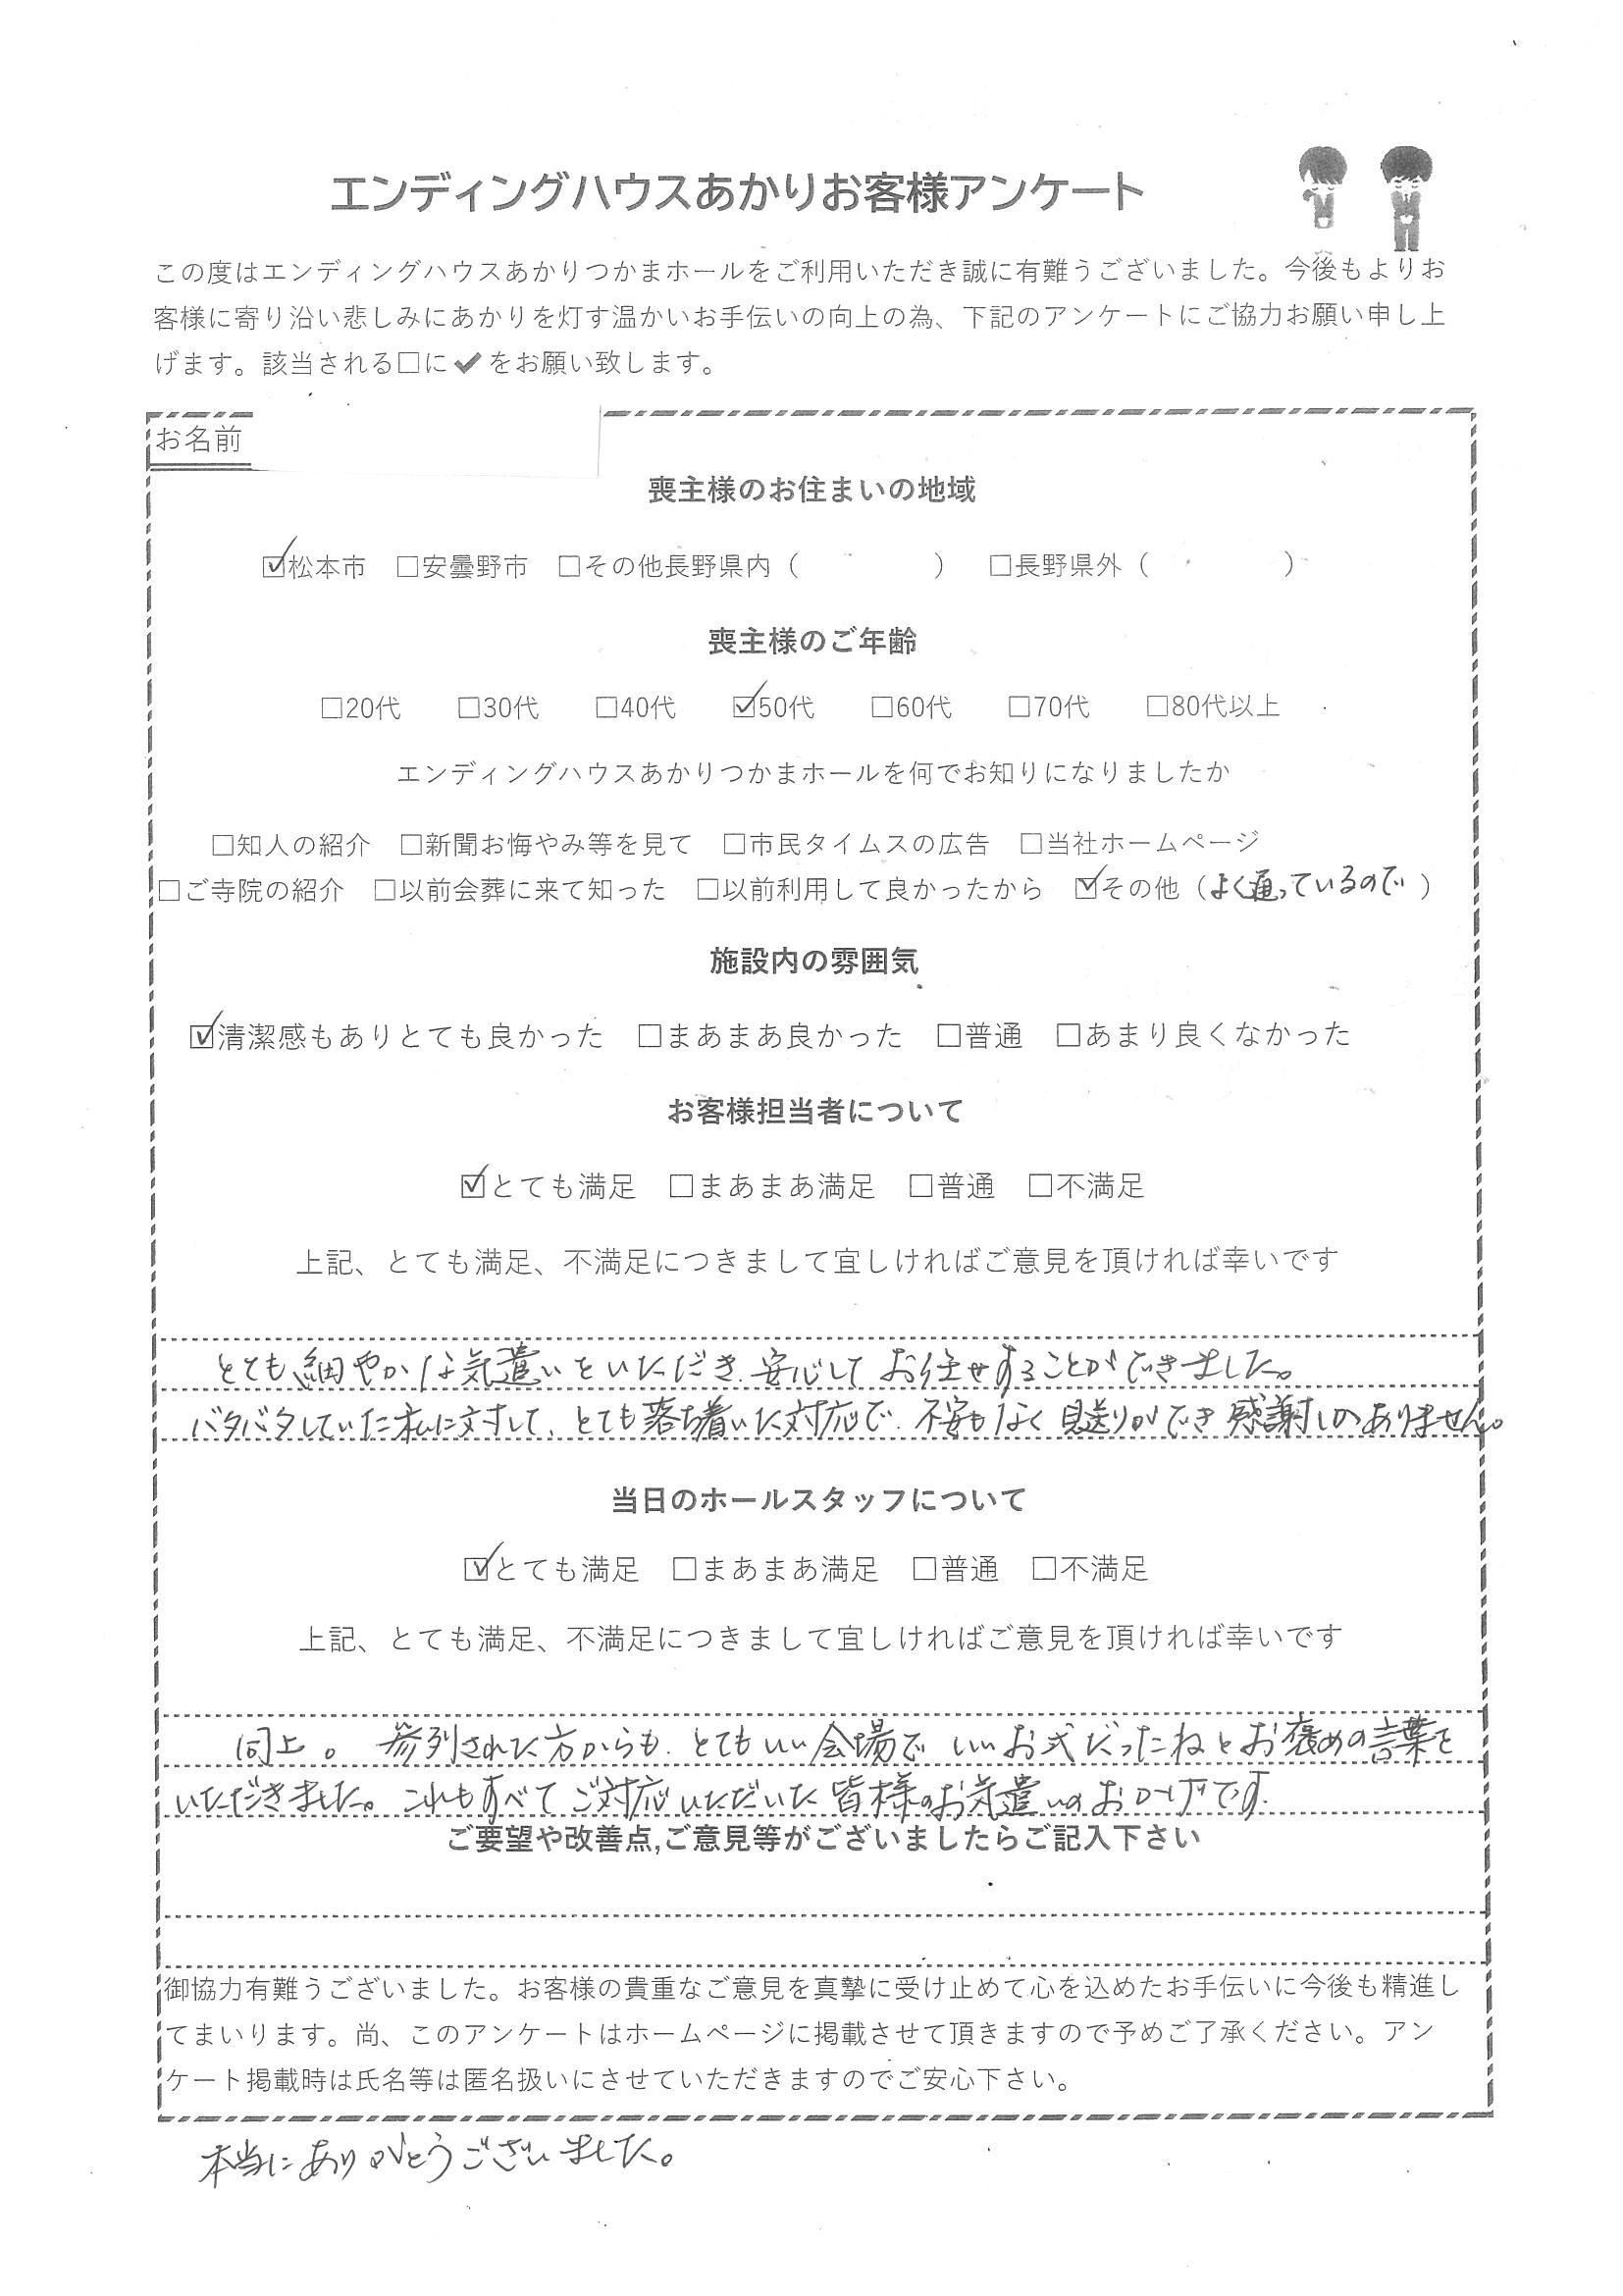 エンディングハウスあかりお客様アンケート
この度はエンディングハウスあかりつかまホールをご利用いただき誠に有難うございました。今後もよりお
客様に寄り沿い悲しみにあかりを灯す温かいお手伝いの向上の為、下記のアンケートにご協力お願い申し上
げます。該当される□に✔をお願い致します。
お名前
喪主様のお住まいの地域
☑松本市 □安曇野市 □その他長野県内（ ） □長野県外（ ）
喪主様のご年齢
□20代 □30代 □40代 ☑50代 □60代 □70代 □80代以上
エンディングハウスあかりつかまホールを何でお知りになりましたか
□知人の紹介 □新聞お悔やみ等を見て □市民タイムスの広告 □当社ホームページ
□ご寺院の紹介 □以前会葬に来て知った □以前利用して良かったから ☑その他（よく通っているので）
施設内の雰囲気
☑清潔感もありとても良かった □まあまあ良かった □普通 □あまり良くなかった
お客様担当者について
☑とても満足 □まあまあ満足 □普通 □不満足
上記、とても満足、不満足につきまして宜しければご意見を頂ければ幸いです
とても細やかな気遣いをいただき、安心してお任せすることができました。
バタバタしていた私に対して、とても落ち着いた対応で、不安もなく見送りができ感謝しかありません。
当日のホールスタッフについて
☑とても満足 □まあまあ満足 □普通 □不満足
上記、とても満足、不満足につきまして宜しければご意見を頂ければ幸いです
同上。参列された方からも、とてもいい会場でいいお式だったねとお褒めの言葉を
いただきました。これもすべてご対応いただいた皆様のお気遣いのおかげです。
ご要望や改善点,ご意見等がございましたらご記入下さい
御協力有難うございました。お客様の貴重なご意見を真摯に受け止めて心を込めたお手伝いに今後も精進し
てまいります。尚、このアンケートはホームページに掲載させて頂きますので予めご了承ください。アン
ケート掲載時は氏名等は匿名扱いにさせていただきますのでご安心下さい。
本当にありがとうございました。